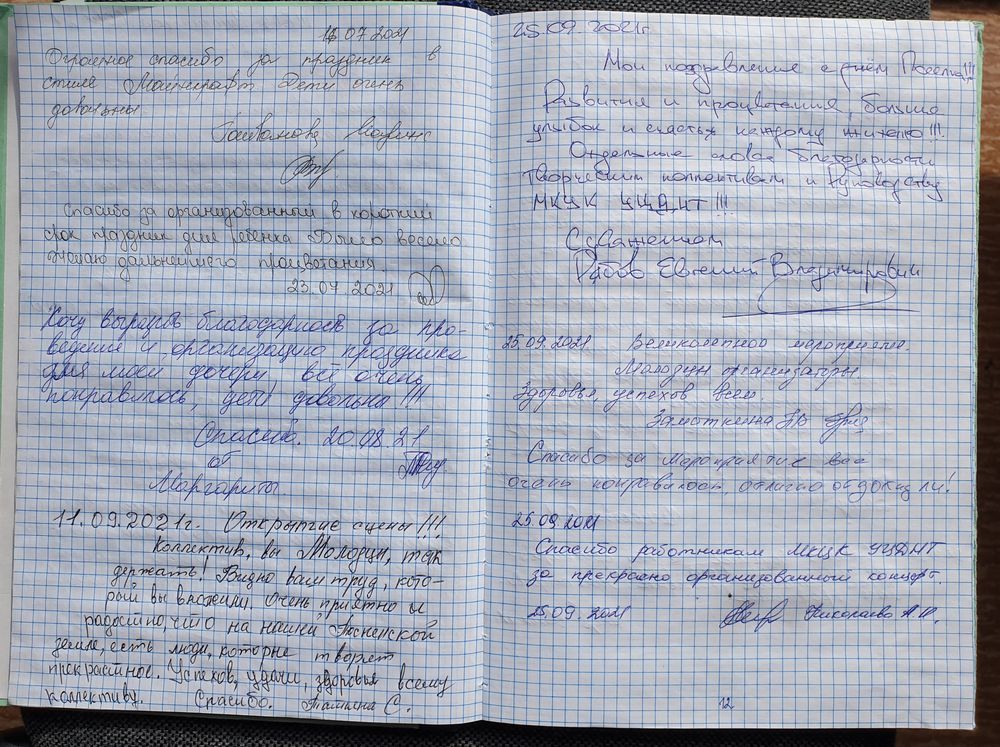 16.07.2021
Огромное спасибо за праздник в
стиле Майнкрафт Дети очень
довольны.
Спасибо за организованный в короткий
срок праздник для ребёнка Было весело
Желаю дальнейшего процветания.
23.07 2021
Хочу выразить благодарность за про-
ведение и организацию праздника
для моей дочери, всё очень
понравилось, дети довольны!!!
Спасибо. 20.08.21
от
Маргариты.
11.09.2021г. Открытие сцены!!!
Коллектив, вы Молодцы, так
держать! Видно вам труд, кото-
рый вы вложили. Очень приятно и
радостно, что на нашей Тосненской
земле, есть люди, которые творят
прекрастное. Успехов, удачи, здоровья всему
коллективу. Спасибо. С.
25.09.2021г
Мои поздравления с днём Поселка!!!
Развития и процветания, больше
улыбок и счастья каждому жителю!!!
Отдельные слова благодарности
творческим коллективам и руководству
МКЦК УЦДНТ!!!
С уважением
Рябов Евгений Владимирович
25.09.2021 Великолепное мероприятие.
Молодцы организаторы
Здоровья, успехов всем.
Спасибо за Мероприятие все
очень понравилось, отлично
25.09.2021
Спасибо работникам МКЦК УЦДНТ
за прекрасно организованный концерт
25.09.2021 Николаева А.И.
12